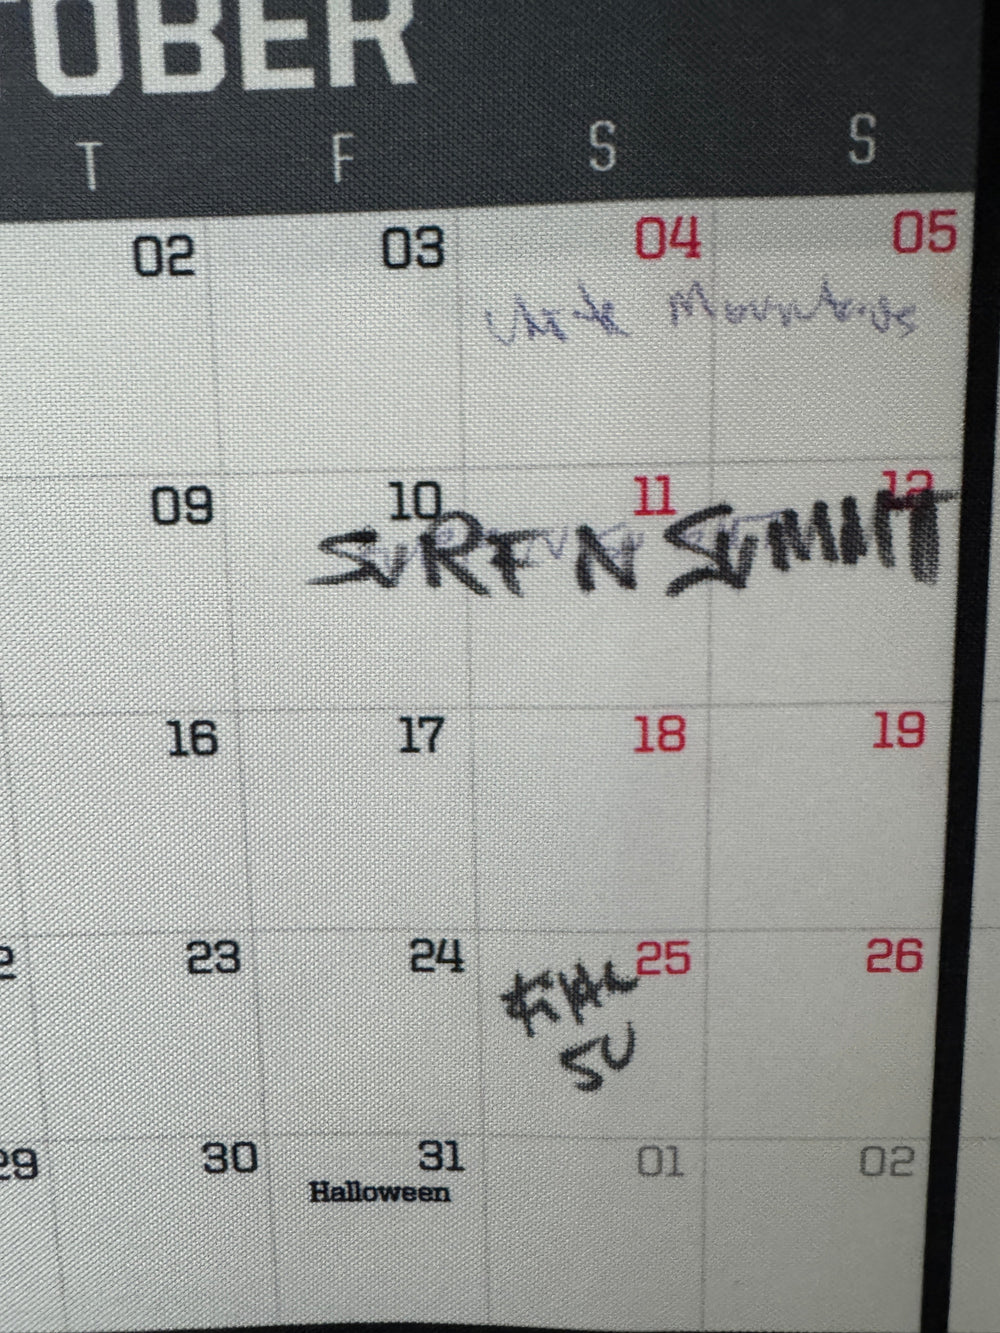 TOBER
T F S S
02 03 04 05
Mountains
09 10 11 12
SURF N SUMMIT
16 17 18 19
2 23 24 25 26
FINAL
SU
29 30 31 01 02
Halloween